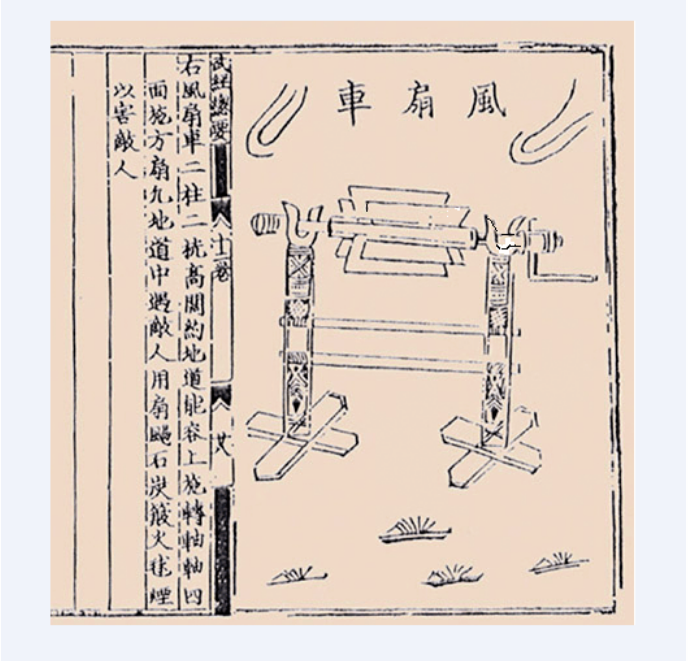 風扇車
武經總要
十二卷
廿八
右風扇車二柱二桄高闊約地道能容上施轉軸軸四
面施方扇凡地道中遇敵人用扇颺石炭簸火毬煙
以害敵人